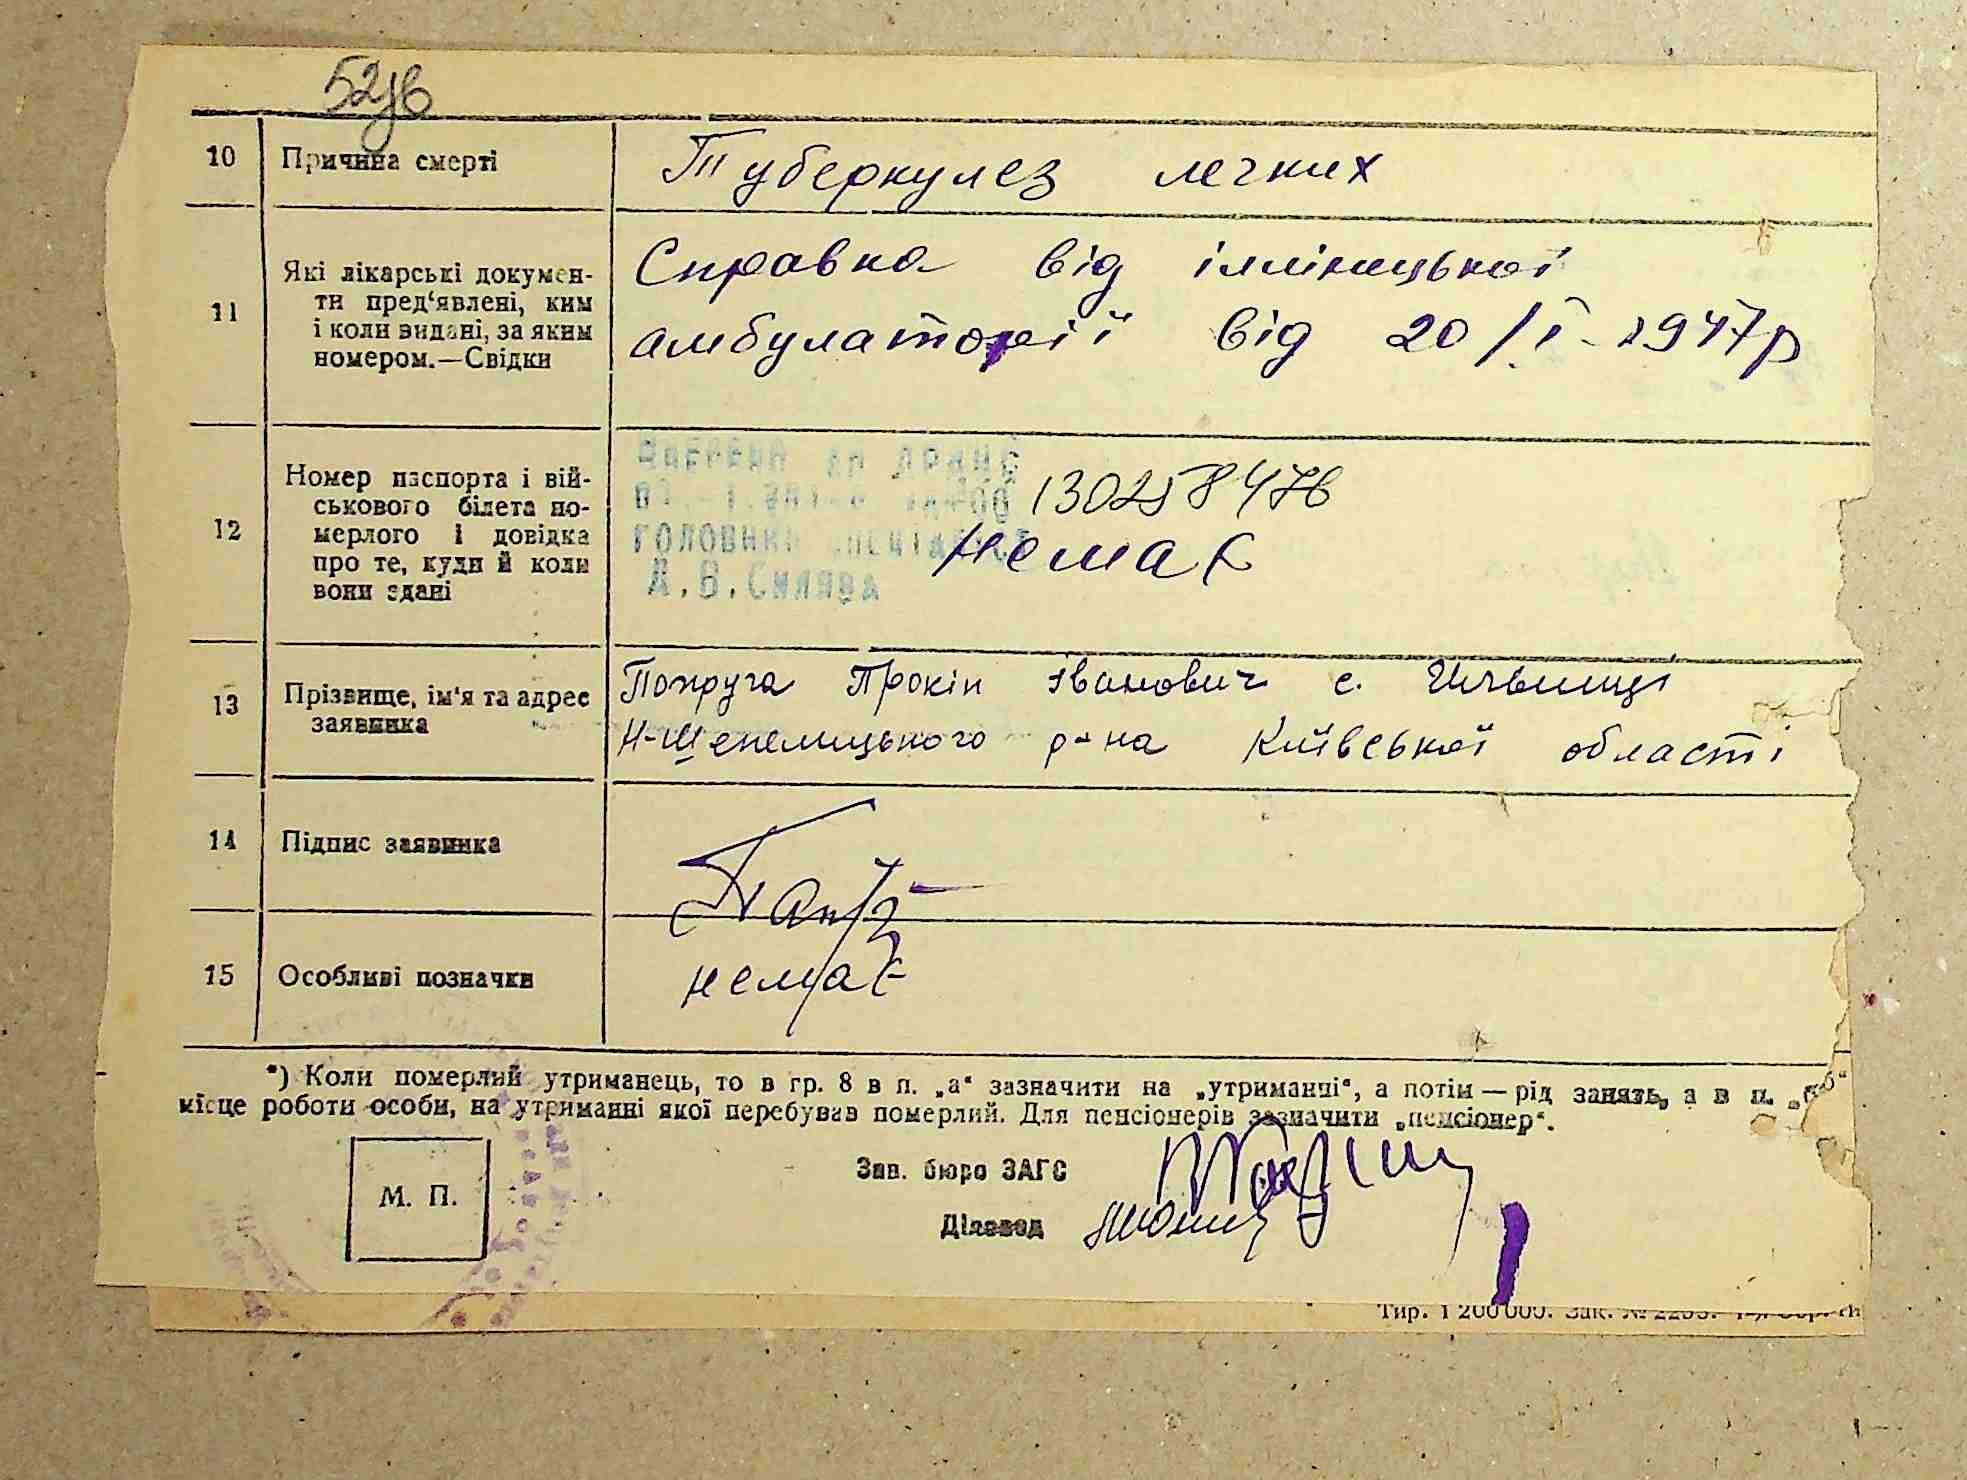 52зв
10 Причина смерті Туберкулез легких
11 Які лікарські докумен-
ти пред'явлені, ким
і коли видані, за яким
номером.—Свідки
Справка від іллінецької
амбулаторії від 20/I-1947р
12 Номер паспорта і вій-
ськового білета по-
мерлого і довідка
про те, куди й коли
вони здані
головний
А.В.Силява
130258476
немає
13 Прізвище, ім'я та адрес
заявника
Попруга Прокіп Іванович с. Ильинці
Н-Шепелицького р-на Київської області
14 Підпис заявника
15 Особливі позначки немає
*) Коли померлий утриманець, то в гр. 8 в п. „а“ зазначити на „утриманні“, а потім — рід занять, а в п. „б“
місце роботи особи, на утриманні якої перебував померлий. Для пенсіонерів зазначити „пенсіонер“.
М. П.
Зав. бюро ЗАГС
Діловод
Тир. 1 200 000. Зак. № 2253.